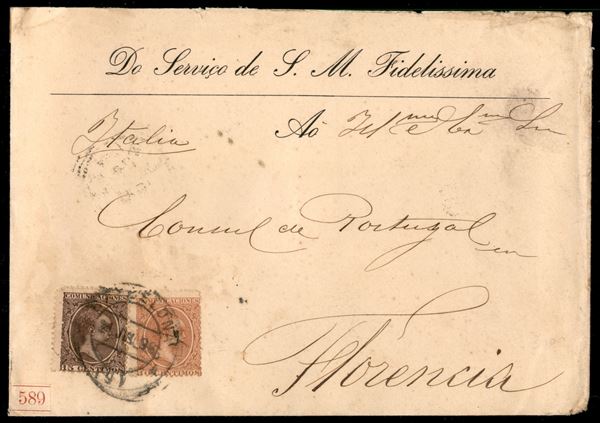 Do Serviço de S. M. Fidelissima
Italia
Ao Ill^mo e Ex^mo Snr
Consul de Portugal em
Florencia
COMUNICACIONES
15 CENTIMOS
CENTIMOS
589